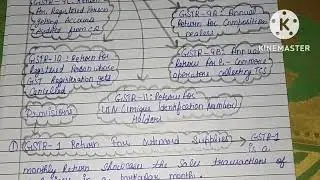 For Registered Person
getting Accounts
Audited from CA
GSTR-9A: Annual
Return For Composition
dealers
KINEMASTER
GSTR-10: Return for
Registered Person whose
GST Registration gets
Cancelled
GSTR-9B: Annual
Return For E-commerce
operators collecting TCS
GSTR-11: Return for
UIN (Unique Identification Number)
Holders
Provisions
① GSTR-1 Return for outward Supplies → GSTR-1
is a
monthly Return Showcase the Sales transactions of
a particular month.